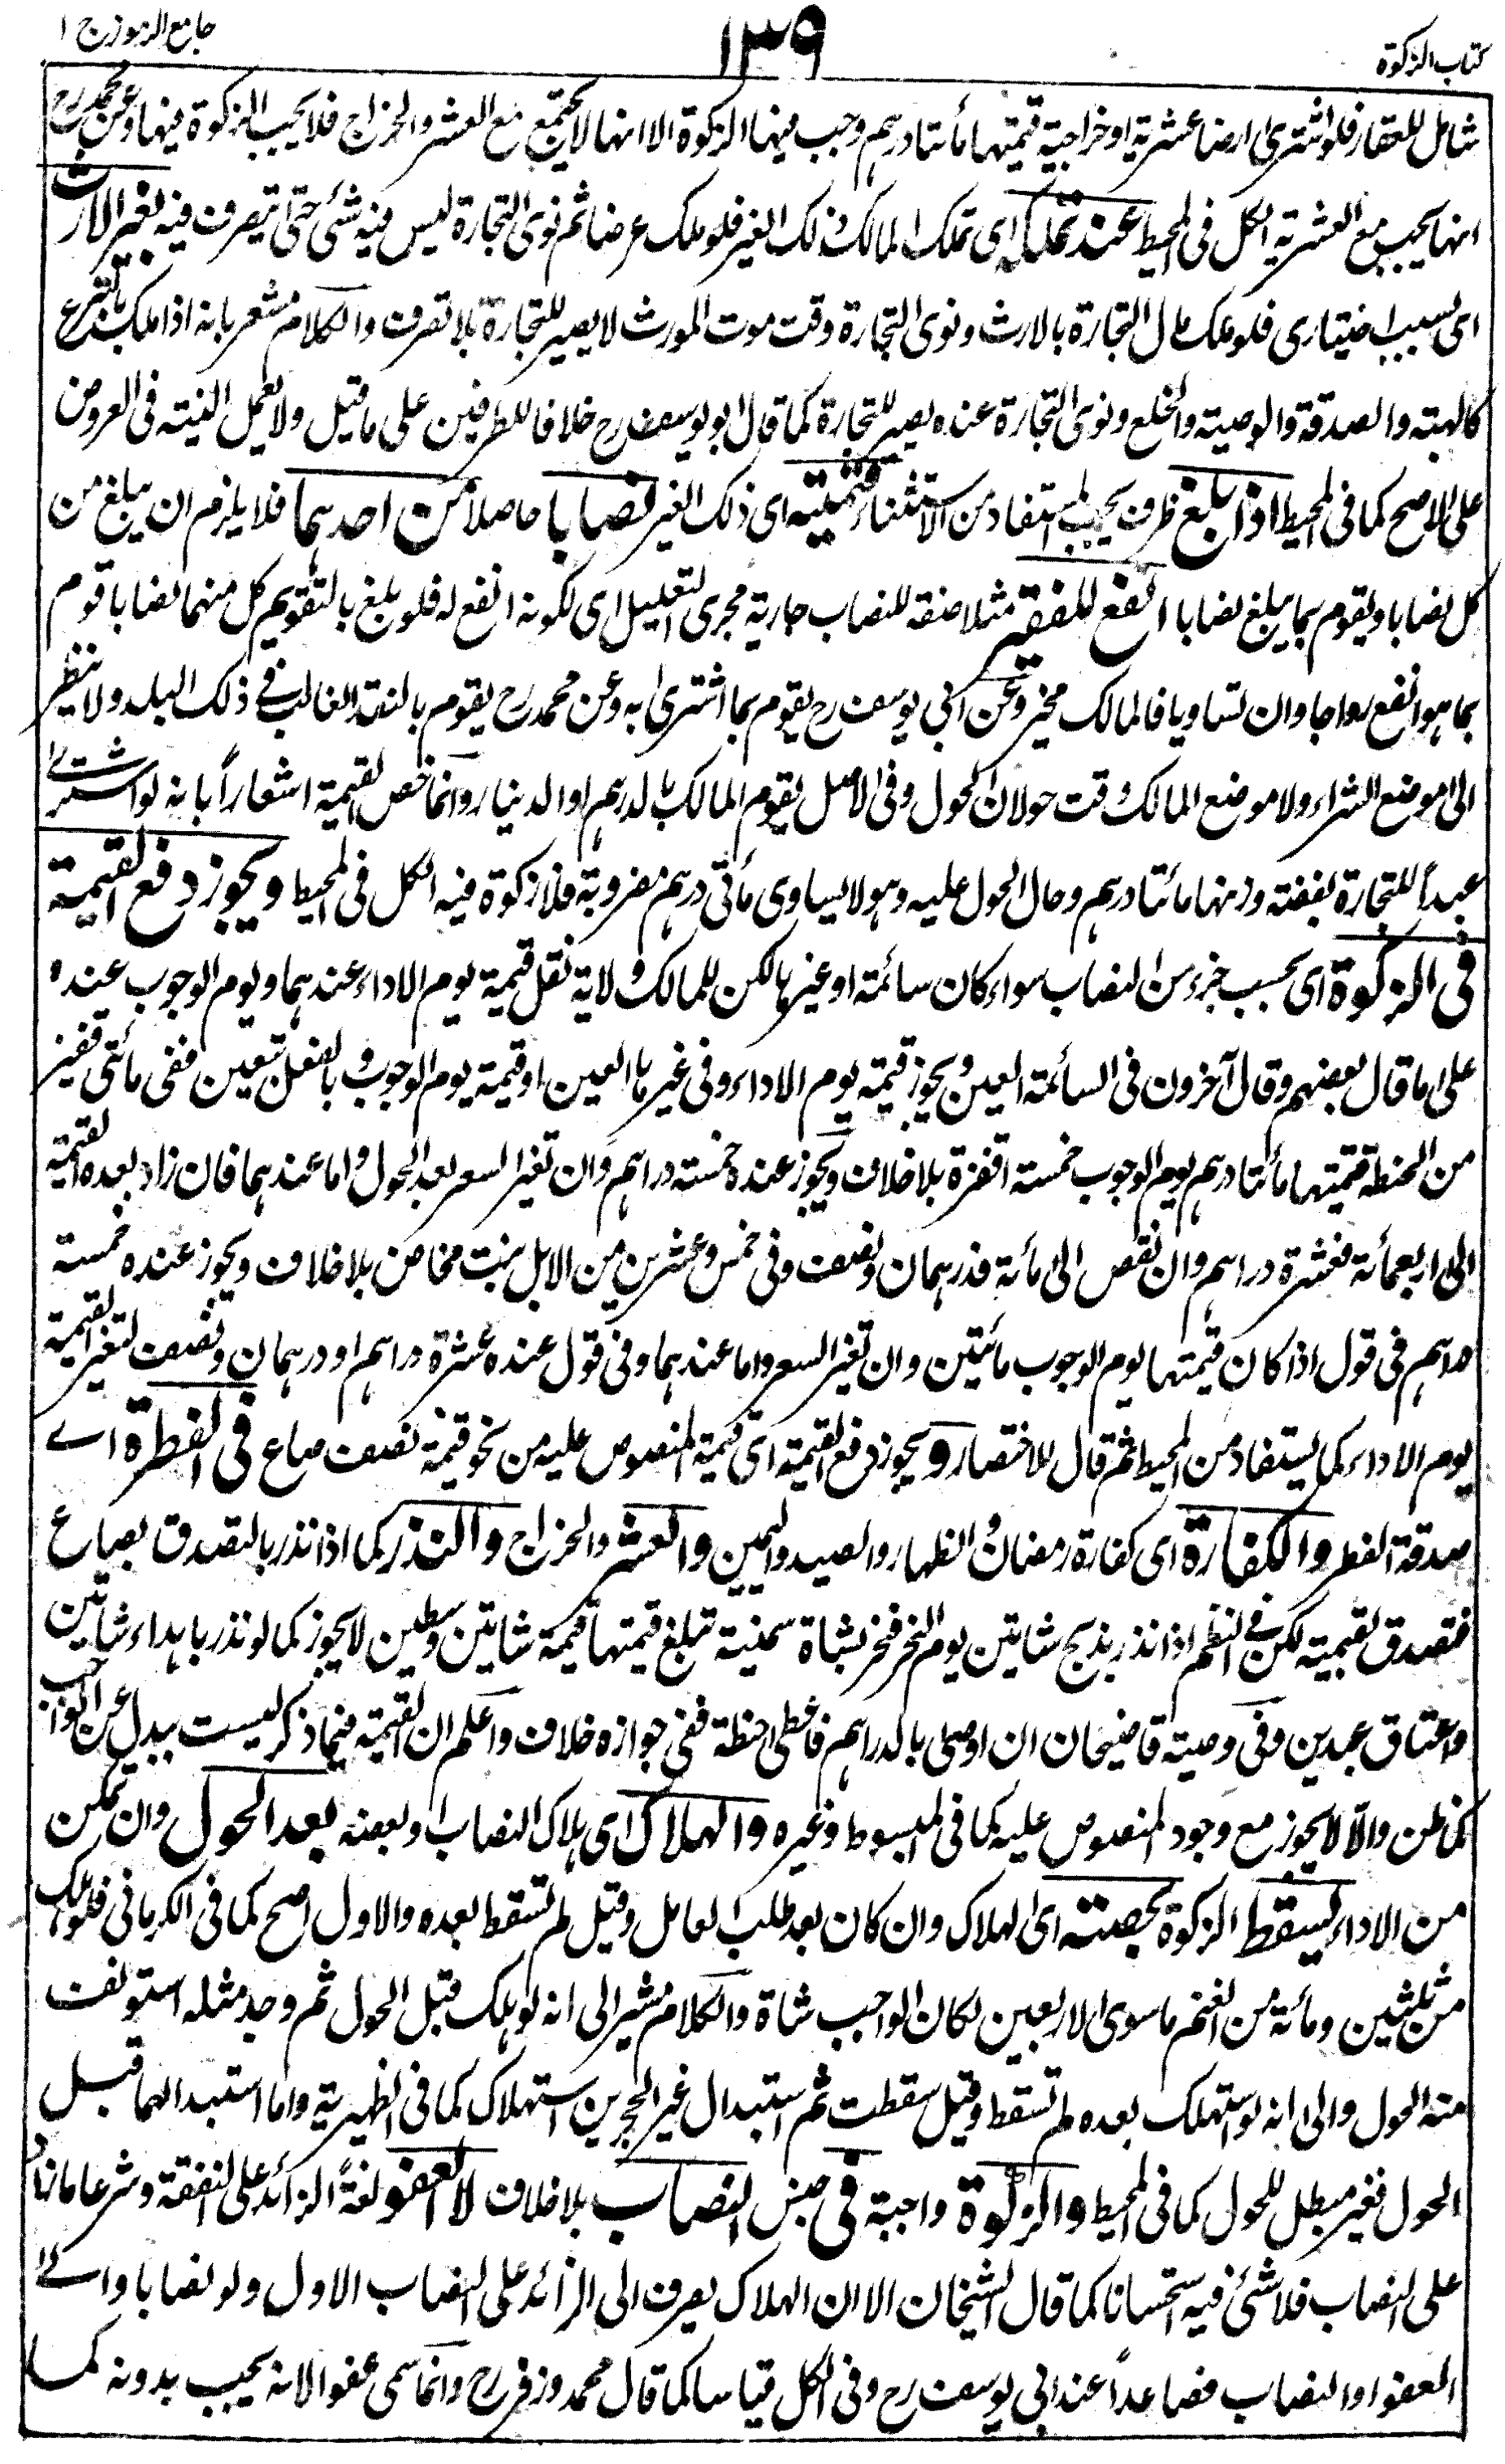 كتاب الزكوة
١٣٩
جامع الرموز ج ١
شامل للعقار فلو اشترى ارضا عشرية او خراجية قيمتها مأتا درهم وجب فيها الزكوة الا انها لا يجتمع مع العشر والخراج فلا يجب الزكوة فيها وعن محمد رح
انها يجب مع العشرية الكل فى المحيط عند تملكه اى تملك المالك ذلك الغير فلو ملك عرضا ثم نوى التجارة ليس فيه شئ حتى يتصرف فيه بغير الارث
اى بسبب اختيارى فلو ملك مال التجارة بالارث ونوى التجارة وقت موت المورث لا يصير للتجارة بلا تصرف والكلام مشعر بانه اذا ملك بالتبرع
كالهبة والصدقة والوصية والخلع ونوى التجارة عنده يصير للتجارة كما قال ابو يوسف رح خلافا للطرفين على ما قيل ولا يعمل النية فى العروض
على الاصح كما فى المحيط اذا بلغ ظرف يجب المستفاد من الاستثناء قيمته اى ذلك الغير نصابا حاصلا من احدهما فلا يلزم ان يبلغ من
كل نصابا ويقوم بما يبلغ نصابا انفع للفقير مثلا صفة للنصاب جارية مجرى التعليل اى لكونه انفع له فلو بلغ بالتقويم كل منهما نصابا قوم
بما هو انفع رواجا وان تساويا فالمالك مخير وعن ابى يوسف رح يقوم بما اشترى به وعن محمد رح يقوم بالنقد الغالب فے ذلك البلد ولا ينظر
الى موضع الشراء ولا موضع المالك وقت حولان الحول وفى الاصل يقوم المالك بالدرهم او الدينار وانما خص القيمة اشعاراً بانه لو اشترے
عبداً للتجارة بفضة وزنها مائتا درهم وحال الحول عليه وهو لا يساوى مأتى درهم مضروبة فلا زكوة فيه الكل فى المحيط ويجوز دفع القيمة
فى الزكوة اى بحسب جزء من النصاب سواء كان سائمة او غيرها لكن للمالك ولاية نقل قيمة يوم الاداء عندهما ويوم الوجوب عنده
على ما قال بعضهم وقال آخرون فى السائمة العين ويجوز قيمة يوم الاداء وفى غيرها العين او قيمة يوم الوجوب وبالفعل تتعين ففى مائتى قفيز
من الحنطة قيمتها مأتا درهم يوم الوجوب خمسة اقفزة بلا خلاف ويجوز عنده خمسة دراهم وان تغير السعر بعد الحول واما عندهما فان زاد بعده القيمة
الى اربعمائة فعشرة دراهم وان نقص الى مائة فدرهمان ونصف وفى خمس وعشرين من الابل بنت مخاض بلا خلاف ويجوز عنده خمسة
دراهم فى قول اذا كان قيمتها يوم الوجوب مائتين وان تغير السعر واما عندهما وفى قول عنده عشرة دراهم او درهمان ونصف لتغير القيمة
يوم الاداء كما يستفاد من المحيط ثم قال للاختصار ويجوز دفع القيمة اى قيمة المنصوص عليه من نحو قيمة نصف صاع فى الفطرة اے
صدقة الفطر والكفارة اى كفارة رمضان والظهار والصيد واليمين والعشر والخراج والنذر كما اذا نذر بالتصدق بصاع
فتصدق بقيمته لكن فے النظم اذا نذر بذبح شاتين يوم النحر فنحر بشاة سمينة تبلغ قيمتها قيمة شاتين وسطين لا يجوز كما لو نذر باهداء شاتين
واعتاق عبدين وفى وصية قاضيخان ان اوصى بالدراهم فاعطى حنطة ففى جوازه خلاف واعلم ان القيمة فيما ذكر ليست ببدل عن الواجب
كما ظن والّا لا يجوز مع وجود المنصوص عليه كما فى المبسوط وغيره والهلاك اى هلاك النصاب او بعضه بعد الحول وان تمكن
من الاداء يسقط الزكوة بحصته اى الهلاك وان كان بعد طلب العامل وقيل لم تسقط بعده والاول اصح كما فى الكرمانى فلو هلك
من ثلثين ومائة من الغنم ما سوى الاربعين لكان الواجب شاة والكلام مشير الى انه لو هلك قبل الحول ثم وجد مثله استونف
منه الحول والى انه لو استهلك بعده لم تسقط وقيل سقطت ثم استبدال غير الحجرين استهلاك كما فى الظهيرية واما استبدالهما قبل
الحول فغير مبطل للحول كما فى المحيط والزكوة واجبة فى جنس النصاب بلا خلاف لا العفو لغة الزائد على النفقة وشرعا ما زاد
على النصاب فلا شئ فيه استحسانا كما قال الشيخان الا ان الهلاك يصرف الى الزائد على النصاب الاول ولو نصابا والے
العفو او النصاب فصاعداً عند ابى يوسف رح وفى الكل قياسا كما قال محمد وزفر رح وانما سمى عفوا لانه يجب بدونه كما